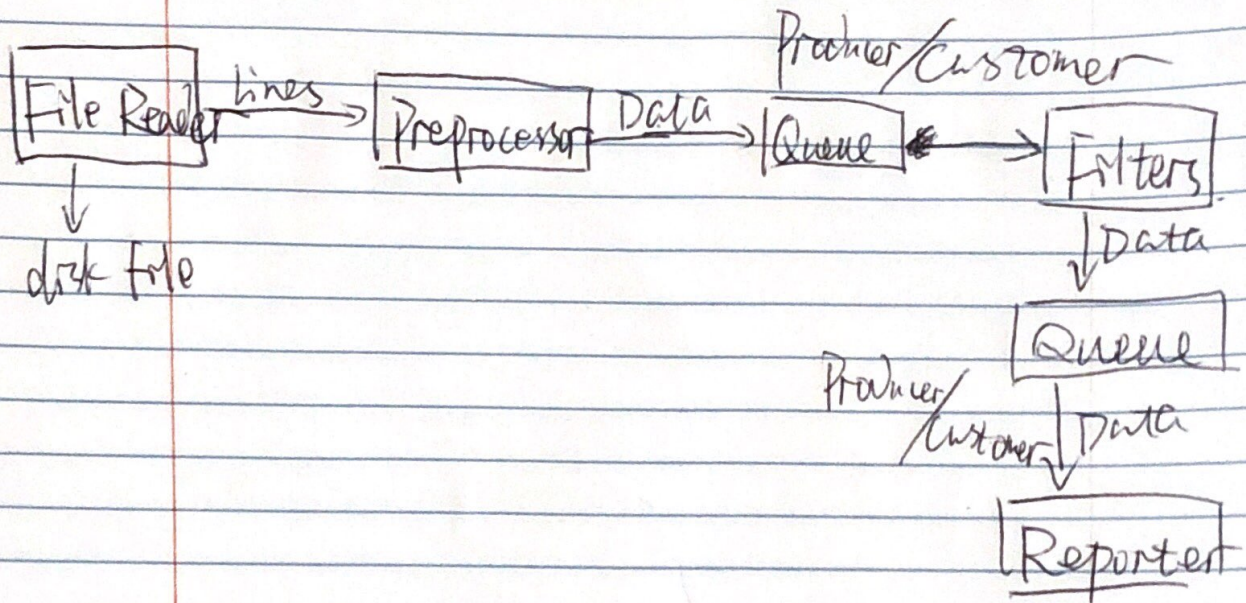 Producer/Customer
File Reader
Lines
Preprocessor
Data
Queue
Filters
Data
disk file
Queue
Producer/
Customer
Data
Reporter